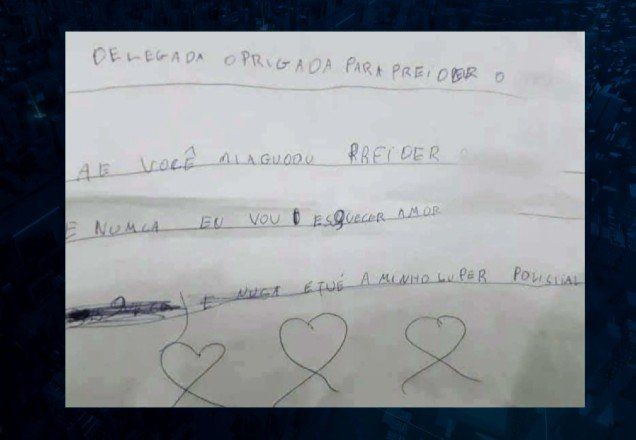 DELEGADA OPRIGADA PARA PREIDER O
AE VOCÊ MIAGUODU PREIDER
E NUMCA EU VOU ESQUECER AMOR
E NUGA ETUÉ A MINHO LUPER POLISIAL